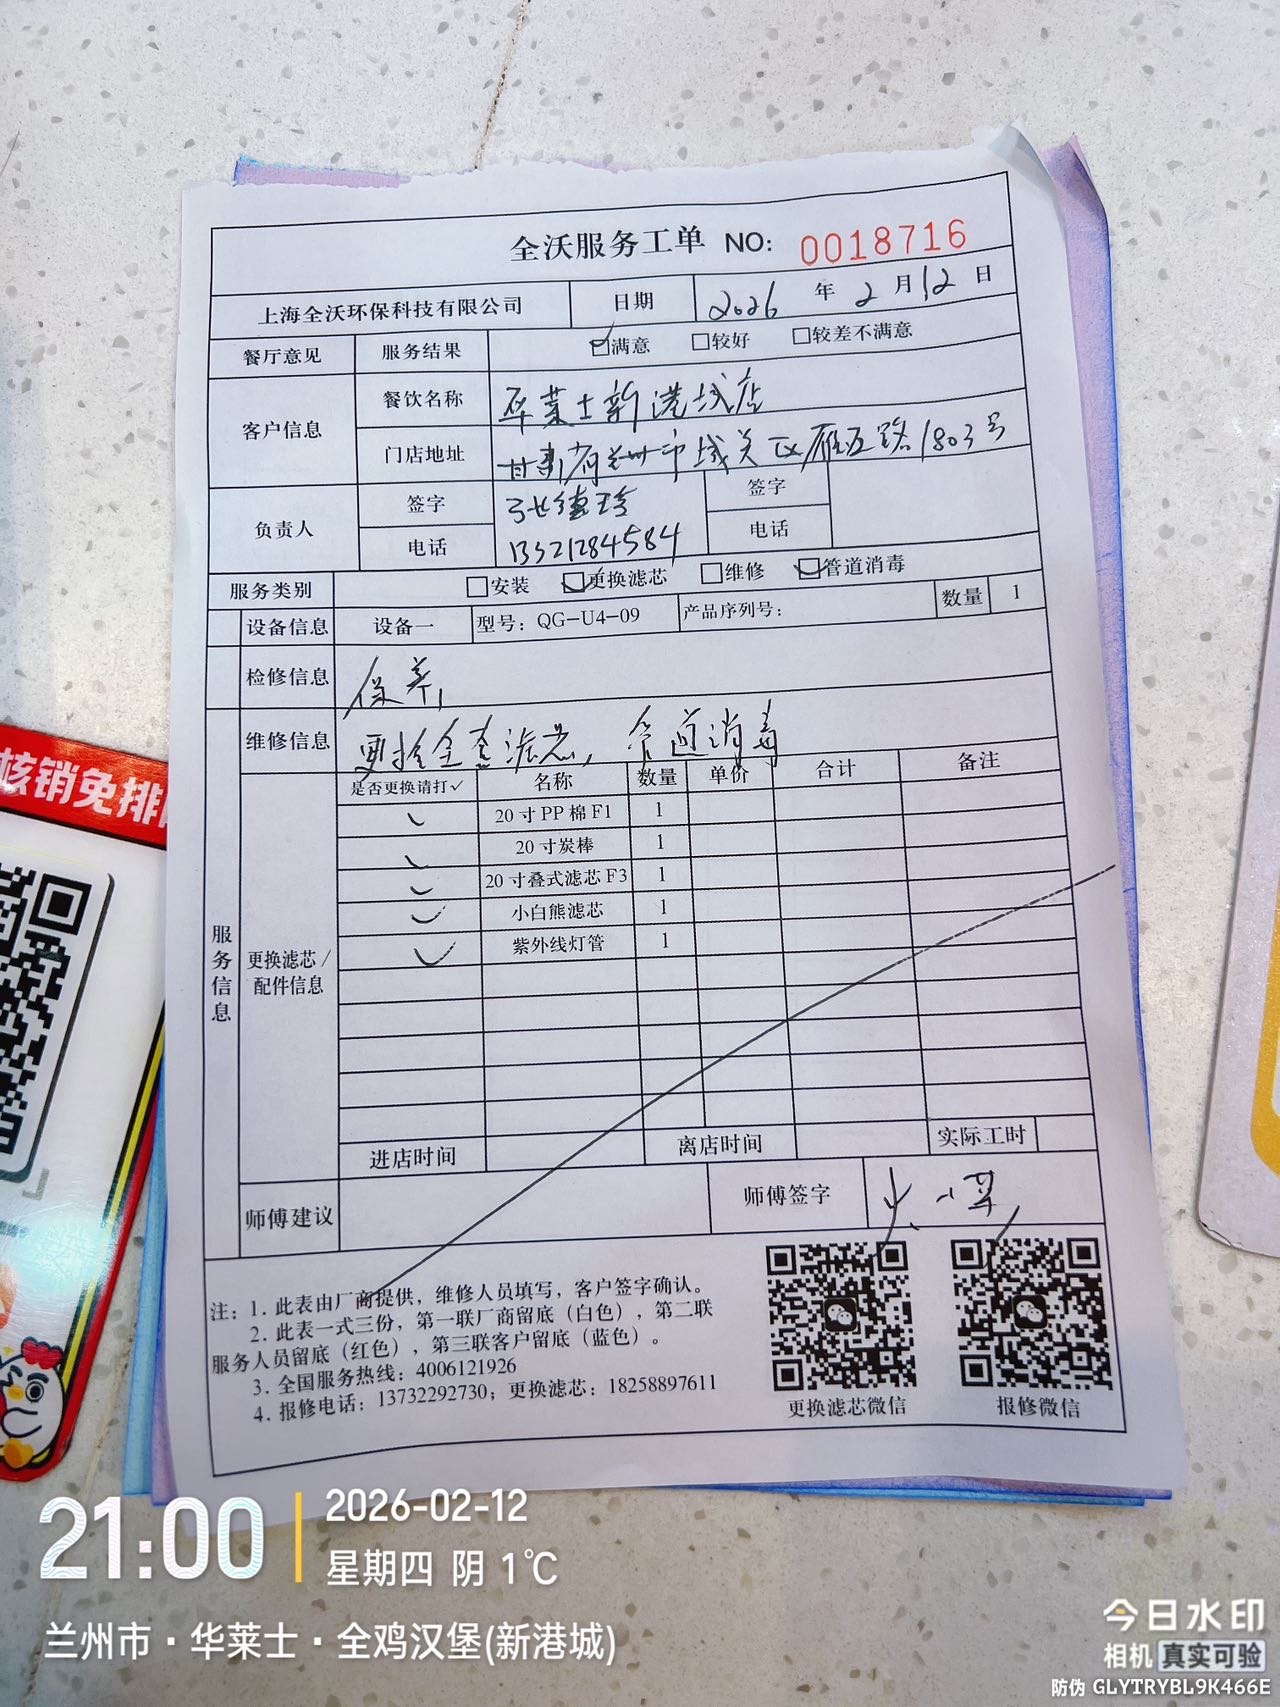 全沃服务工单 NO: 0018716
上海全沃环保科技有限公司 日期 2026 年 2 月 12 日
餐厅意见 服务结果 ☑满意 □较好 □较差不满意
客户信息 餐饮名称 华莱士新港城店
门店地址 甘肃省兰州市城关区雁西路1803号
负责人 签字 张德玲 签字
电话 13321284584 电话
服务类别 □安装 ☑更换滤芯 □维修 ☑管道消毒
设备信息 设备一 型号：QG-U4-09 产品序列号： 数量 1
检修信息 保养，
维修信息 更换全套滤芯，管道消毒
服务信息
更换滤芯/配件信息
是否更换请打✓ 名称 数量 单价 合计 备注
✓ 20寸PP棉F1 1
✓ 20寸炭棒 1
✓ 20寸叠式滤芯F3 1
✓ 小白熊滤芯 1
✓ 紫外线灯管 1
进店时间 离店时间 实际工时
师傅建议 师傅签字
注：1. 此表由厂商提供，维修人员填写，客户签字确认。
2. 此表一式三份，第一联厂商留底（白色），第二联
服务人员留底（红色），第三联客户留底（蓝色）。
3. 全国服务热线：4006121926
4. 报修电话：13732292730；更换滤芯：18258897611
更换滤芯微信 报修微信
核销免排
21:00 2026-02-12
星期四 阴 1℃
兰州市·华莱士·全鸡汉堡(新港城)
今日水印
相机 真实可验
防伪 GLYTRYBL9K466E